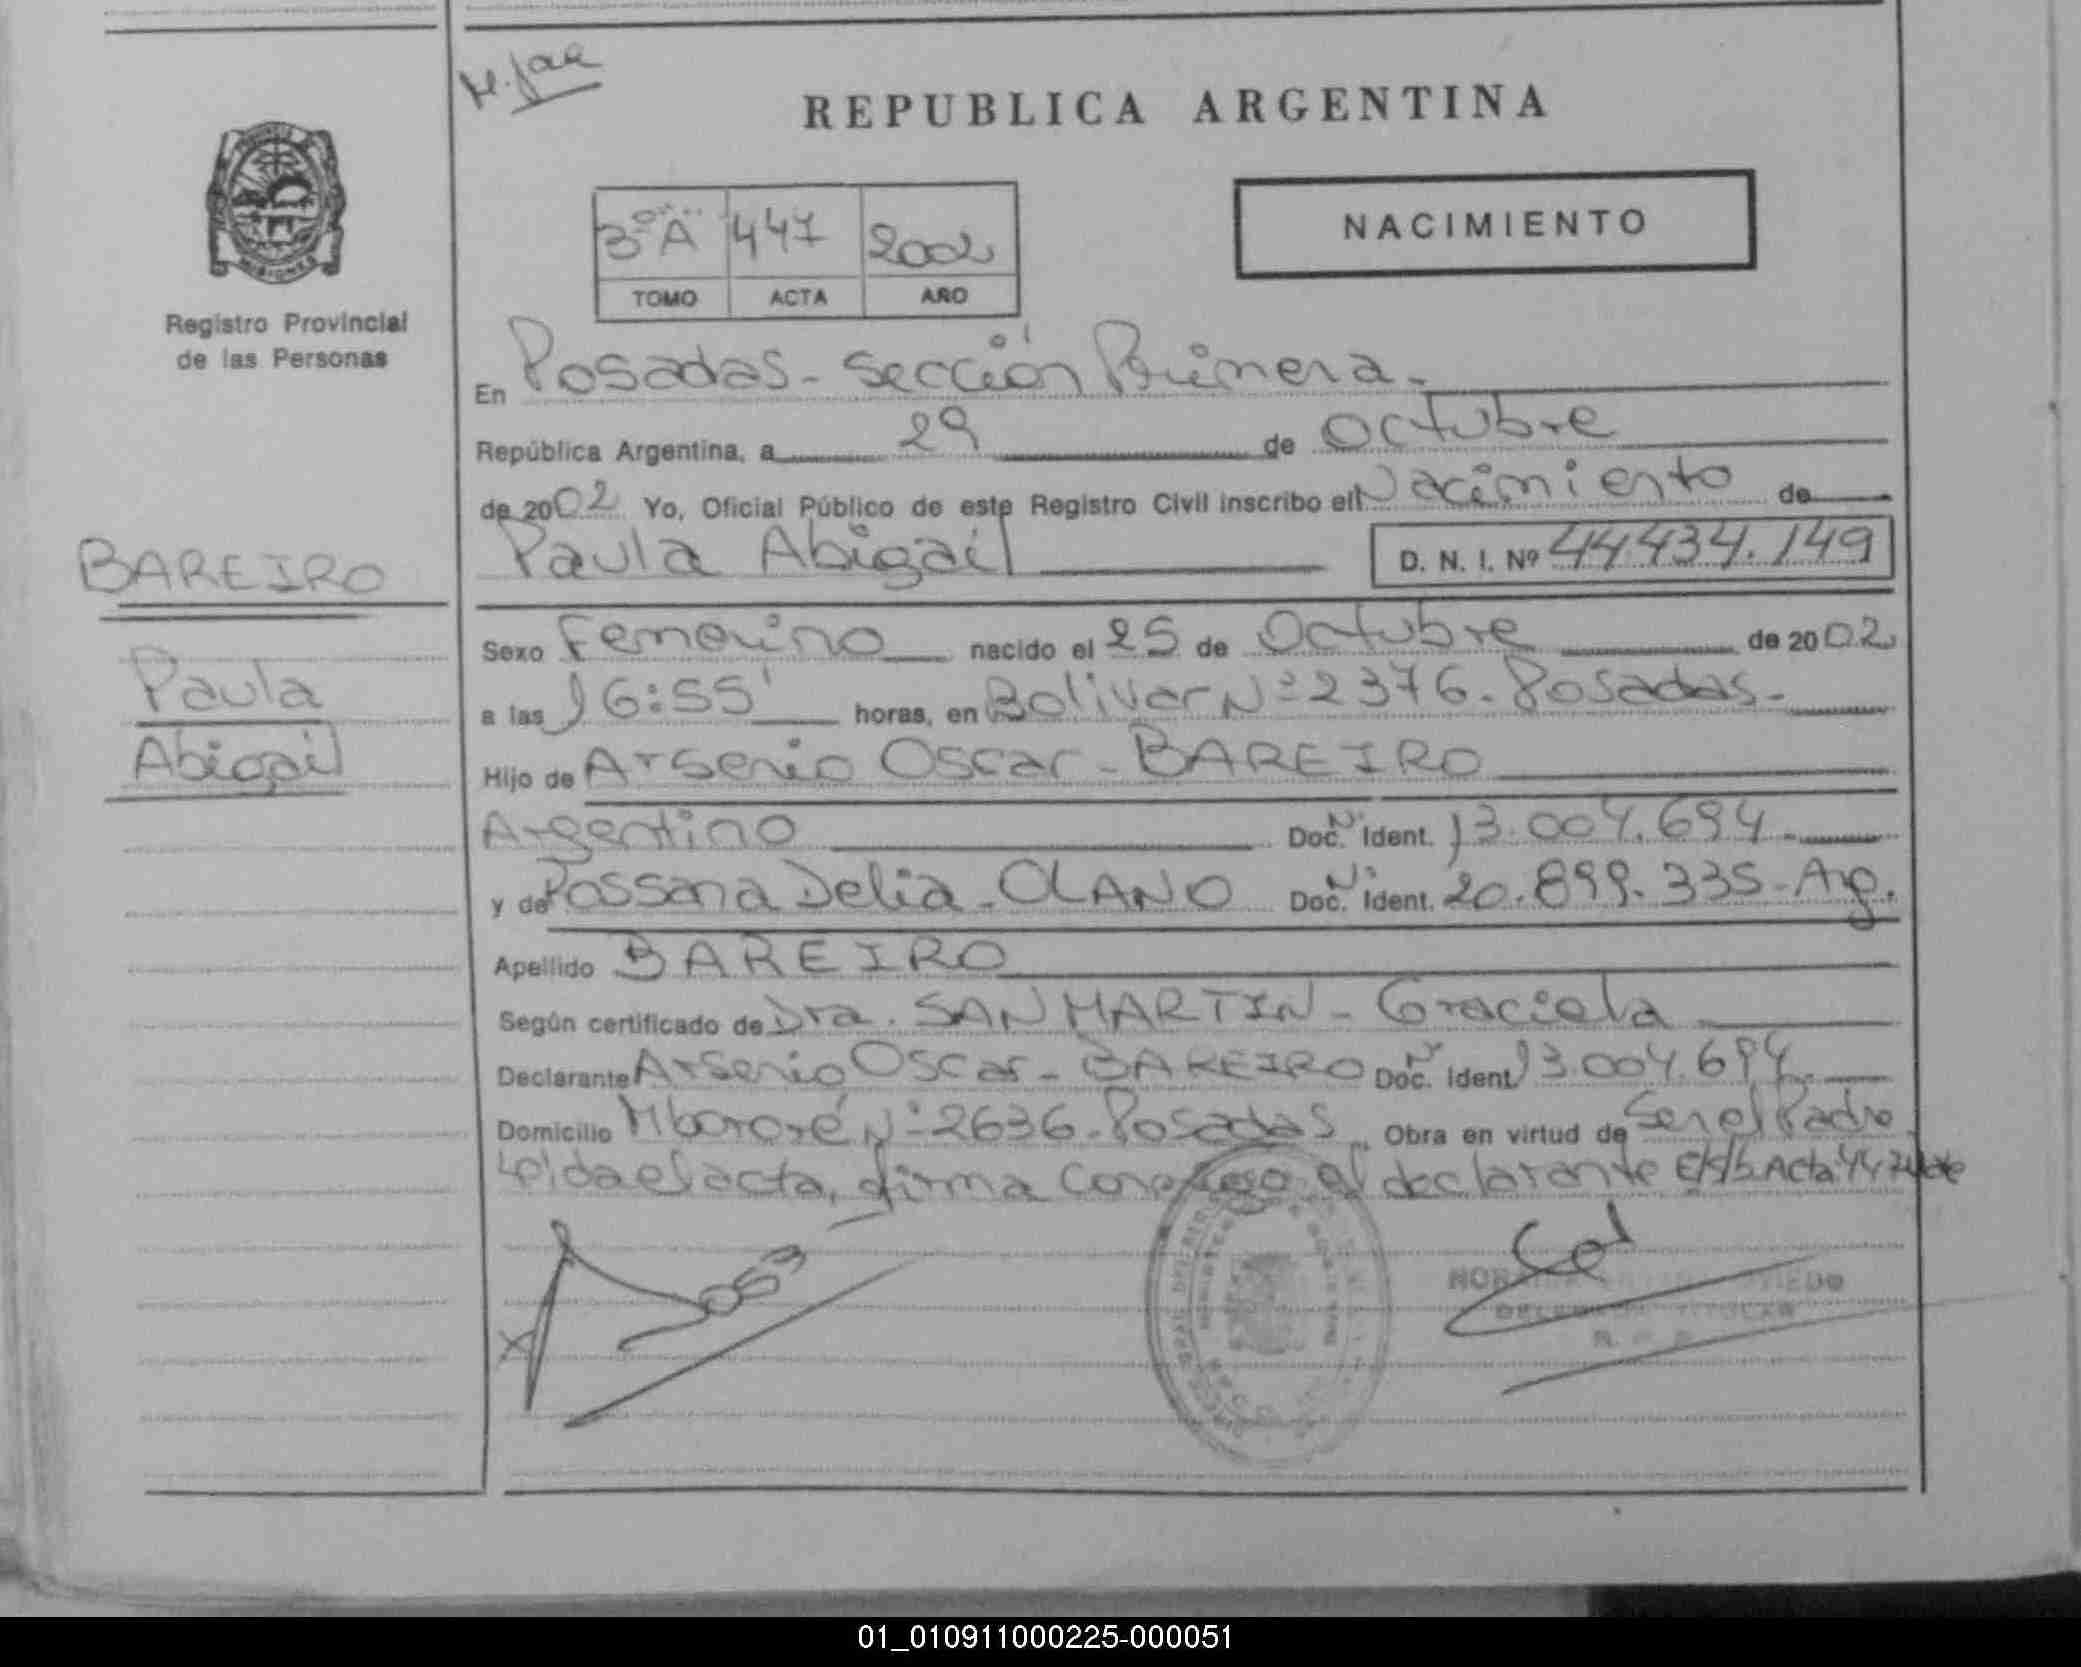 H. Jaa
REPUBLICA ARGENTINA
3º A 447 2002
TOMO ACTA AÑO
NACIMIENTO
MISIONES
Registro Provincial
de las Personas
En Posadas - Sección Primera.
República Argentina, a 29 de Octubre
de 2002 Yo, Oficial Público de este Registro Civil inscribo el Nacimiento de
Paula Abigail D. N. I. Nº 44.434.149
BAREIRO
Paula
Abigail
Sexo Femenino nacido el 25 de Octubre de 2002
a las 16:55' horas, en Bolivar Nº 2376. Posadas.
Hijo de Arsenio Oscar - BAREIRO
Argentino Doc. Nº Ident. 13.004.694.
y de Rossana Delia - OLANO Doc. Nº Ident. 20.899.335 - Arg.
Apellido BAREIRO
Según certificado de Dra. SAN MARTIN - Graciela
Declarante Arsenio Oscar - BAREIRO Doc. Nº Ident 13.004.694.
Domicilio Mbororé Nº 2636 - Posadas Obra en virtud de Ser el Padre
Leida el acta, firma conmigo el declarante E/s/b Acta 447 Vale
DELEGADA TITULAR
01_010911000225-000051